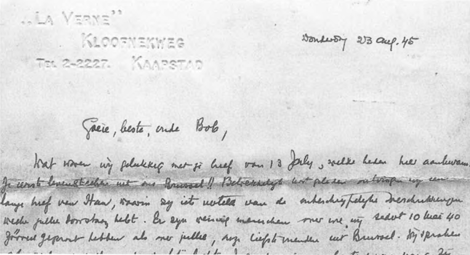 „LA VERNE"
KLOOFNEKWEG
TEL 2-2227. KAAPSTAD
Donderdag 23 Aug. 45
Goeie, beste, oude Bob,
Wat waren wij gelukkig met je brief van 13 July, welke heden hier aankwam.
Je eerste levensteeken met ons Brussel!! Betrekkelijk kort geleden ontvingen wij een
lange brief van Han, waarin zij iets vertelt van de verschrikkingen
welke jullie doorstaan hebt. Er zijn weinig menschen over wie wij sedert 10 Mei 40
zooveel gepraat hebben als over jullie, onze liefste vrienden uit Brussel. Wij spraken